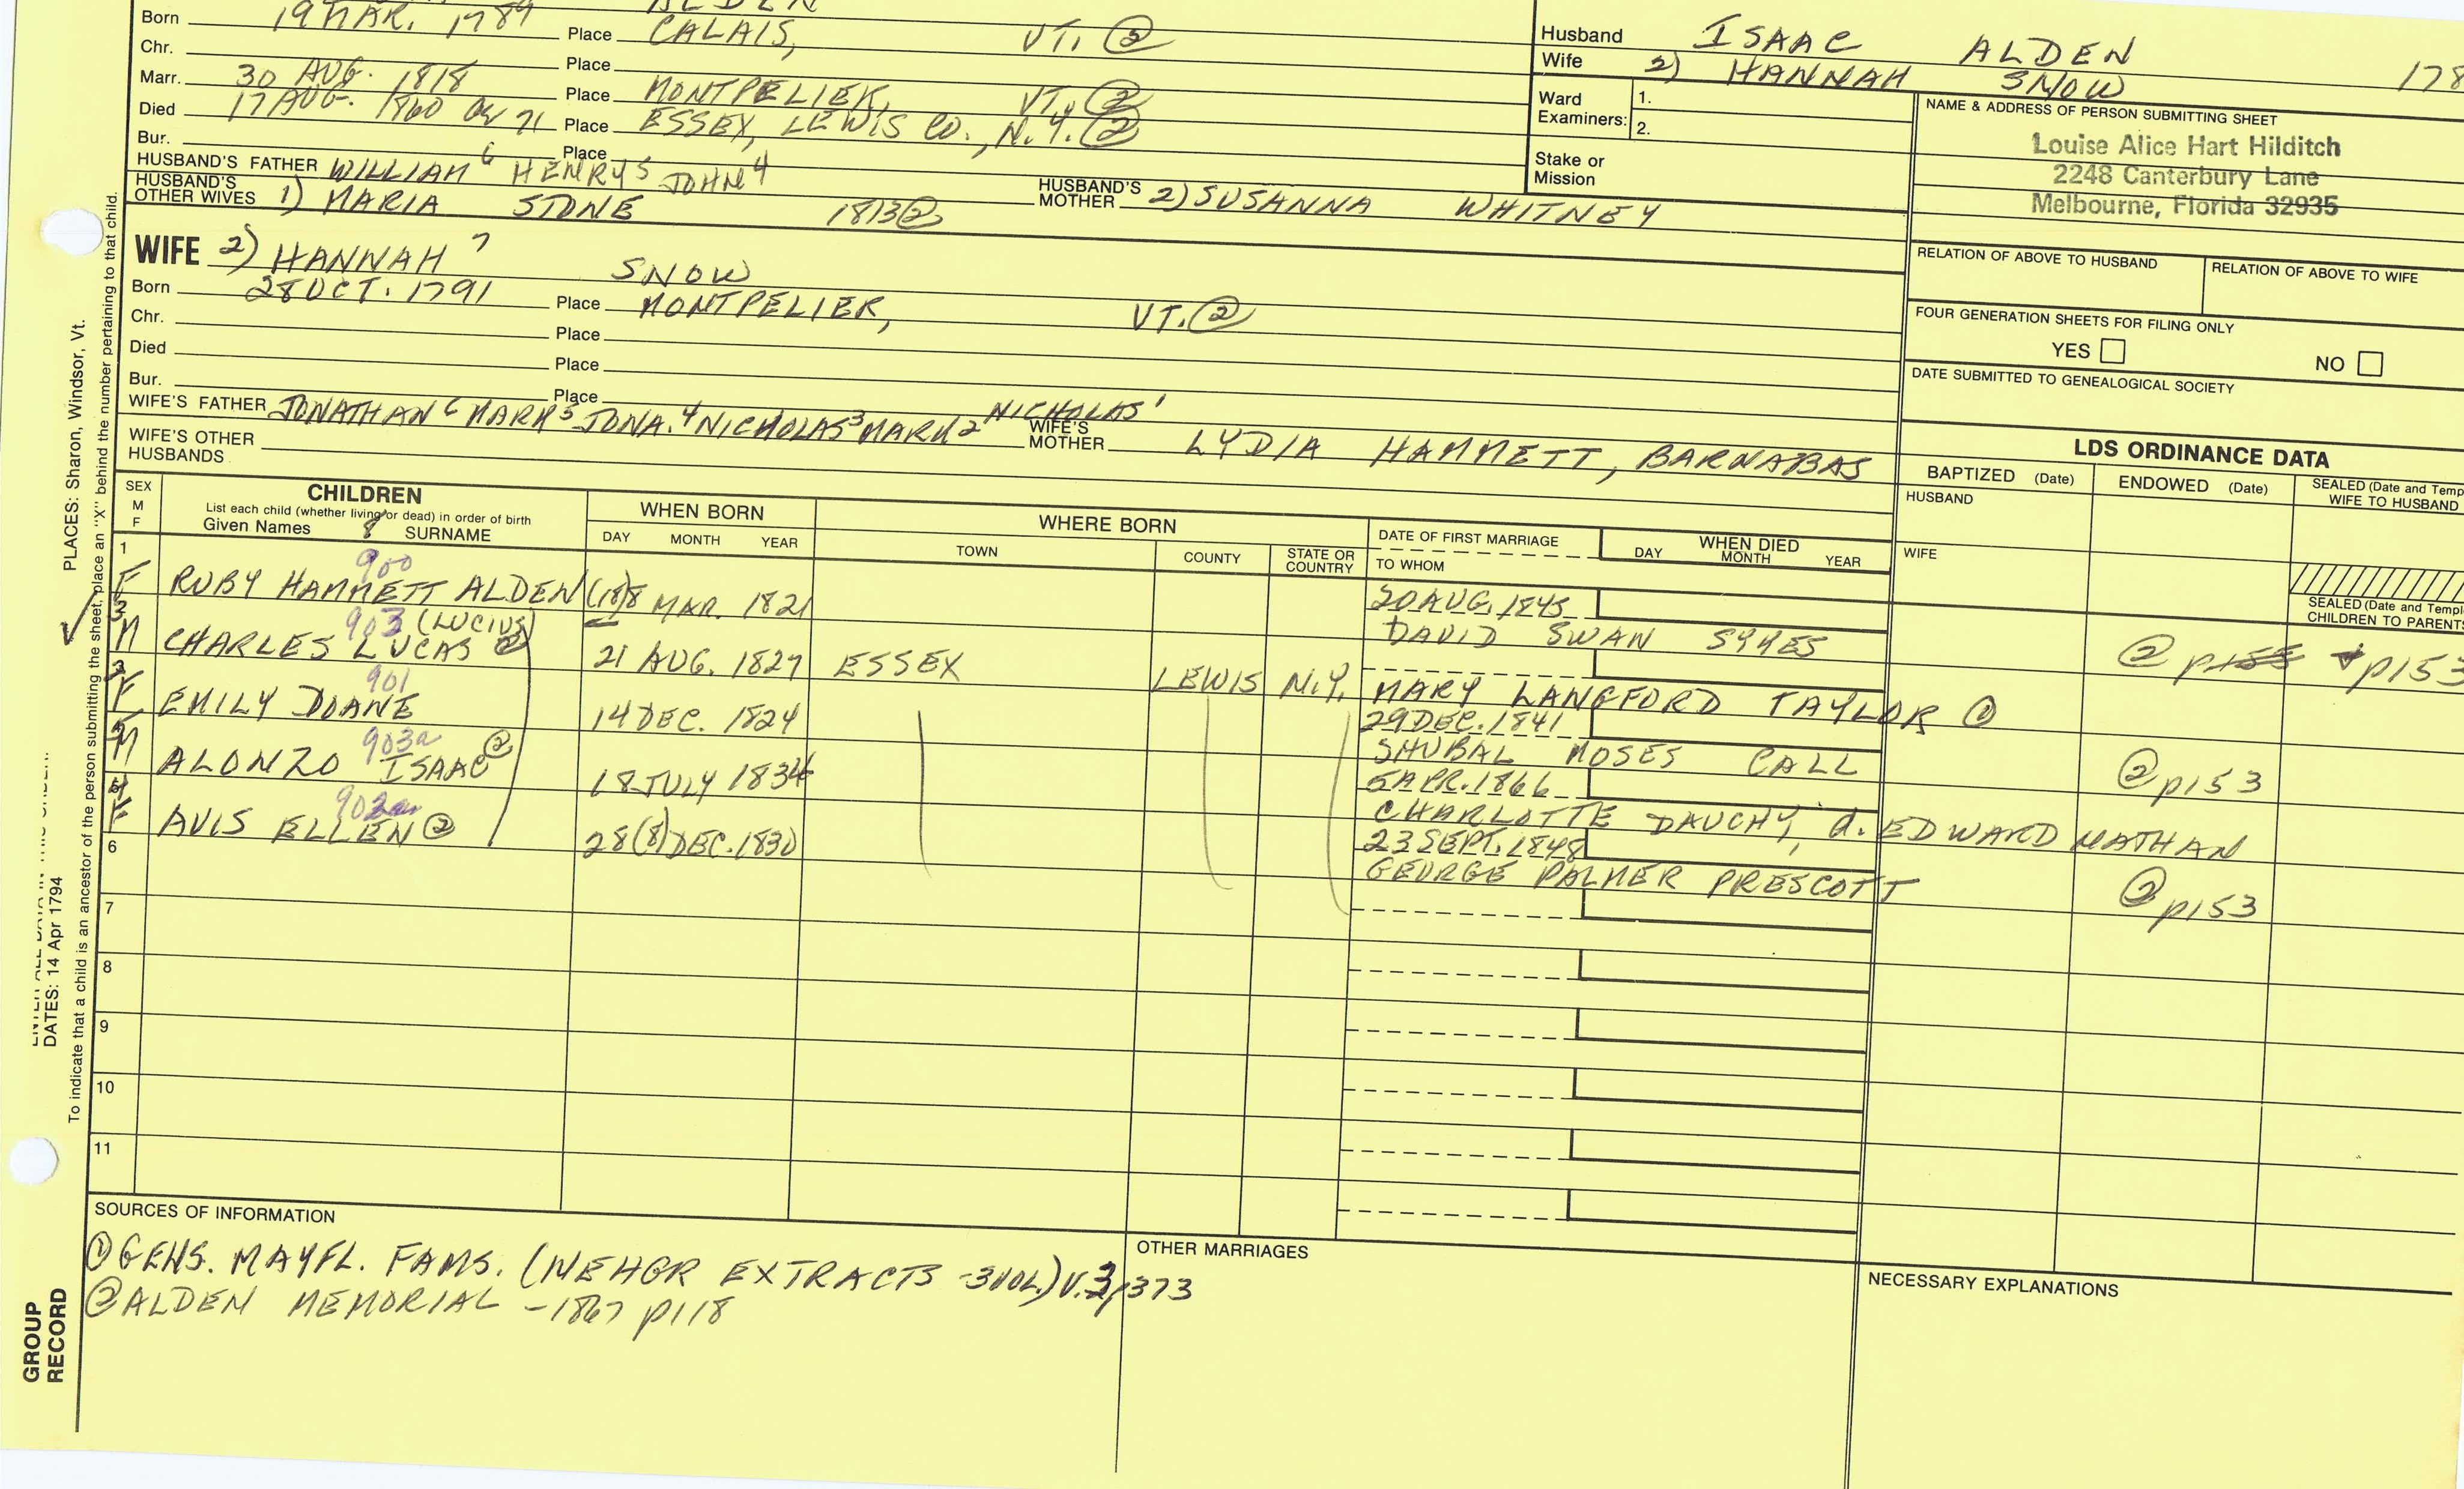 Born 19 MAR. 1789 Place CALAIS, VT. ②
Chr. Place
Marr. 30 AUG. 1818 Place MONTPELIER, VT. ②
Died 17 AUG. 1860 ae 71 Place ESSEX, LEWIS CO., N.Y. ②
Bur. Place
HUSBAND'S FATHER WILLIAM 6 HENRY 5 JOHN 4
HUSBAND'S MOTHER 2) SUSANNA WHITNEY
HUSBAND'S OTHER WIVES 1) MARIA STONE 1813 ②
Husband ISAAC ALDEN 178
Wife 2) HANNAH SNOW
Ward Examiners: 1.
2.
Stake or Mission
NAME & ADDRESS OF PERSON SUBMITTING SHEET
Louise Alice Hart Hilditch
2248 Canterbury Lane
Melbourne, Florida 32935
RELATION OF ABOVE TO HUSBAND RELATION OF ABOVE TO WIFE
FOUR GENERATION SHEETS FOR FILING ONLY
YES NO
DATE SUBMITTED TO GENEALOGICAL SOCIETY
WIFE 2) HANNAH 7 SNOW
Born 28 OCT. 1791 Place MONTPELIER, VT. ②
Chr. Place
Died Place
Bur. Place
WIFE'S FATHER JONATHAN 6 MARK 5 JONA. 4 NICHOLAS 3 MARK 2 NICHOLAS 1
WIFE'S MOTHER LYDIA HAMMETT, BARNABAS
WIFE'S OTHER HUSBANDS
LDS ORDINANCE DATA
BAPTIZED (Date) ENDOWED (Date) SEALED (Date and Temp
WIFE TO HUSBAND
HUSBAND
WIFE
SEALED (Date and Templ
CHILDREN TO PARENTS
SEX M F
CHILDREN
List each child (whether living or dead) in order of birth
Given Names 8 SURNAME
WHEN BORN
DAY MONTH YEAR
WHERE BORN
TOWN COUNTY STATE OR COUNTRY
DATE OF FIRST MARRIAGE
TO WHOM
WHEN DIED
DAY MONTH YEAR
1 900
F RUBY HAMMETT ALDEN (18)8 MAR. 1821 20 AUG. 1845
DAVID SWAN SYKES
903 (LUCIUS)
M CHARLES LUCAS ② 21 AUG. 1827 ESSEX LEWIS N.Y. MARY LANGFORD TAYLOR ① ② p155 p153
901
F EMILY DOANE 14 DEC. 1824 29 DEC. 1841
SHUBAL MOSES CALL
903a
M ALONZO ISAAC ② 18 JULY 1834 5 APR. 1866 ② p153
CHARLOTTE DAUCHY, d. EDWARD NATHAN
F AVIS ELLEN ② 28(8) DEC. 1830 23 SEPT. 1848
GEORGE PALMER PRESCOTT ② p153
6
7
8
9
10
11
SOURCES OF INFORMATION
① GENS. MAYFL. FAMS. (NEHGR EXTRACTS -3VOL.) V.3/373
② ALDEN MEMORIAL -1867 p118
OTHER MARRIAGES
NECESSARY EXPLANATIONS
PLACES: Sharon, Windsor, Vt.
DATES: 14 Apr 1794
To indicate that a child is an ancestor of the person submitting the sheet, place an "X" behind the number pertaining to that child.
GROUP
RECORD